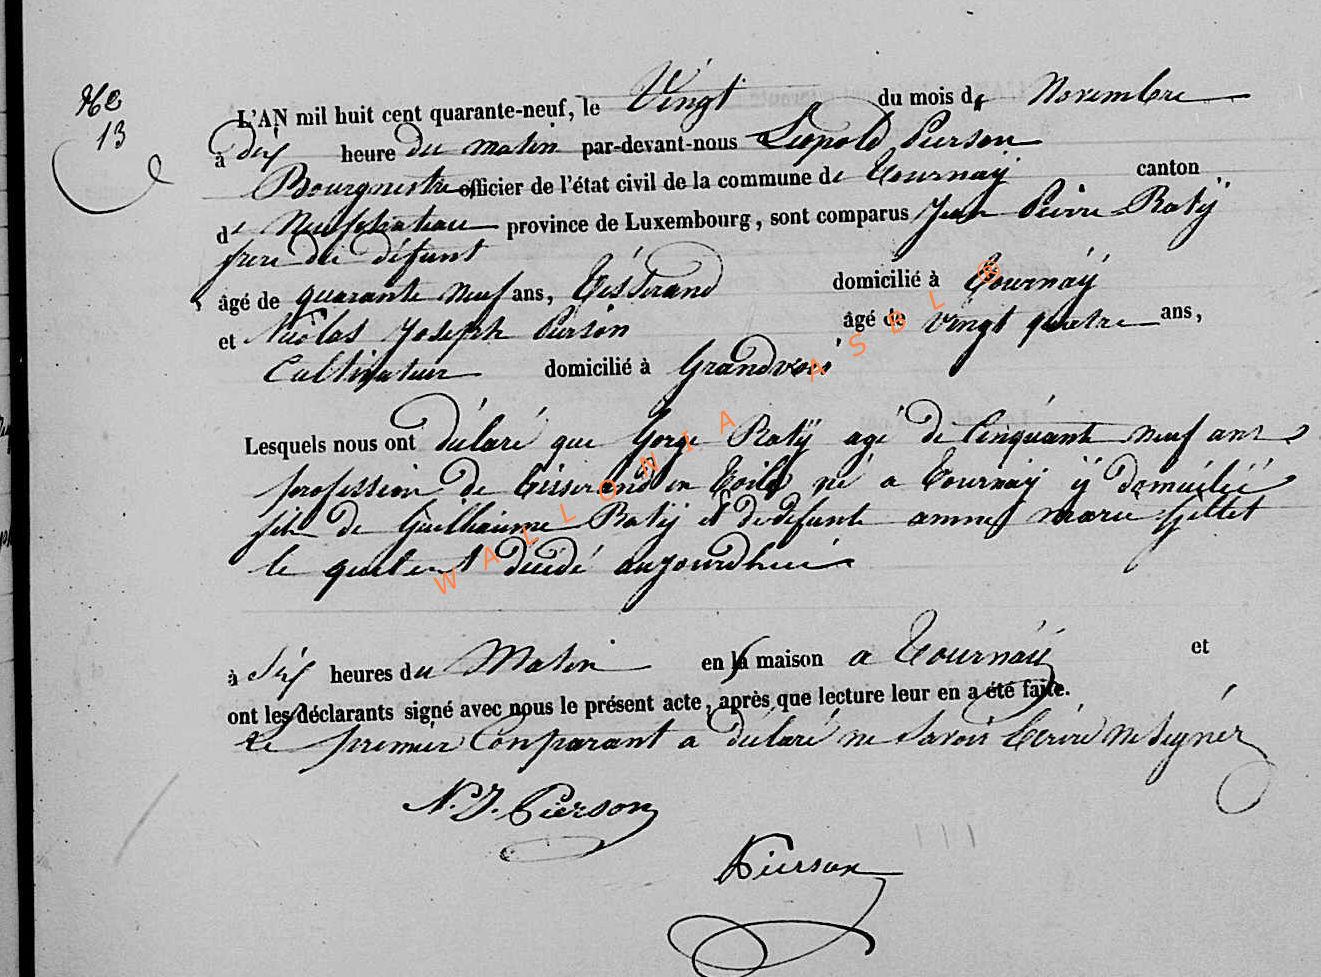 No
13
L'AN mil huit cent quarante-neuf, le Vingt du mois de Novembre
à dix heure du matin par-devant-nous Leopold Pierson
Bourgmestre officier de l'état civil de la commune de Tournaÿ canton
de Neufchateau province de Luxembourg, sont comparus Jean Peirre Ratÿ
frere du défunt
âgé de quarante neuf ans, Tisserand domicilié à Tournaÿ
et Nicolas Joseph Pierson âgé de vingt quatre ans,
Cultivateur domicilié à Grandvoir
Lesquels nous ont déclaré que Gorge Ratÿ agé de Cinquante neuf ans
profession de tisserand en toile né a Tournaÿ ÿ domicilié
fils de Guilliaume Ratÿ et de defunte anne marie
le quel est décédé aujourdhui
à Six heures du Matin en la maison a Tournaÿ et
ont les déclarants signé avec nous le présent acte, après que lecture leur en a été faite.
Le premier Conparant a déclaré ne Savoir Ecrire ne Signér
N. J. Pierson
Pierson
WALLONIA ASBL ®